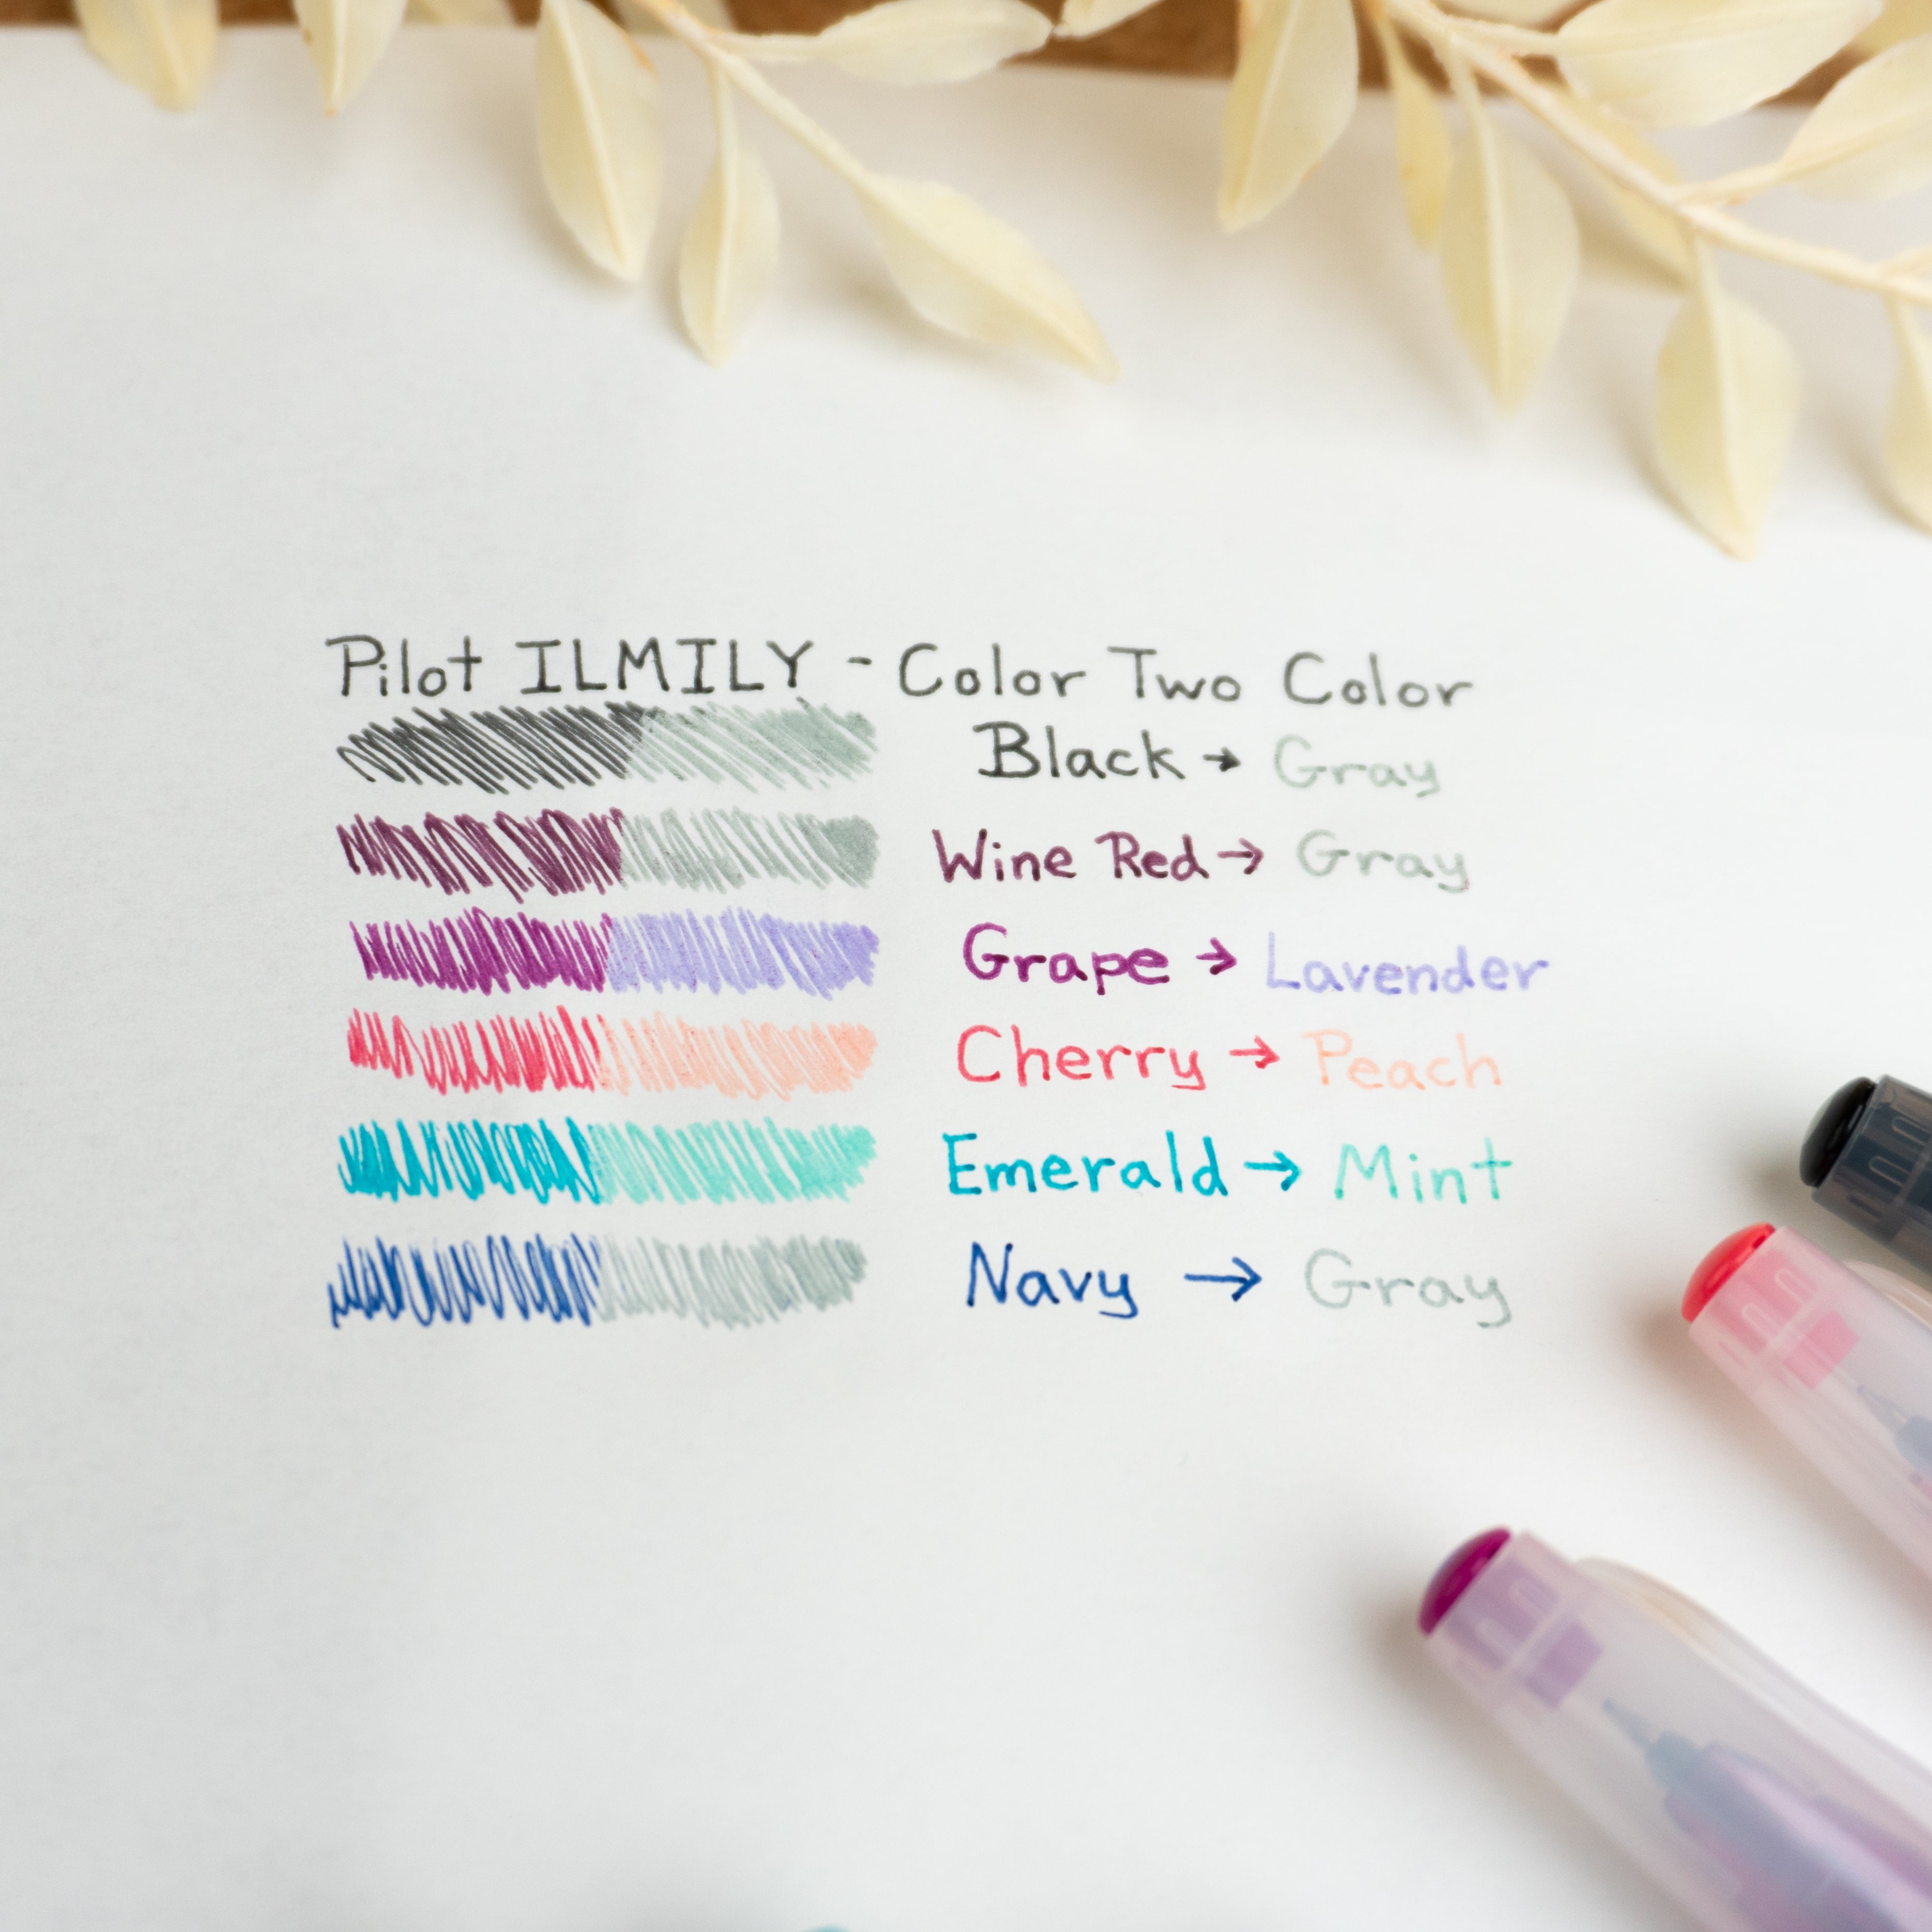 Pilot ILMILY - Color Two Color
Black → Gray
Wine Red → Gray
Grape → Lavender
Cherry → Peach
Emerald → Mint
Navy → Gray